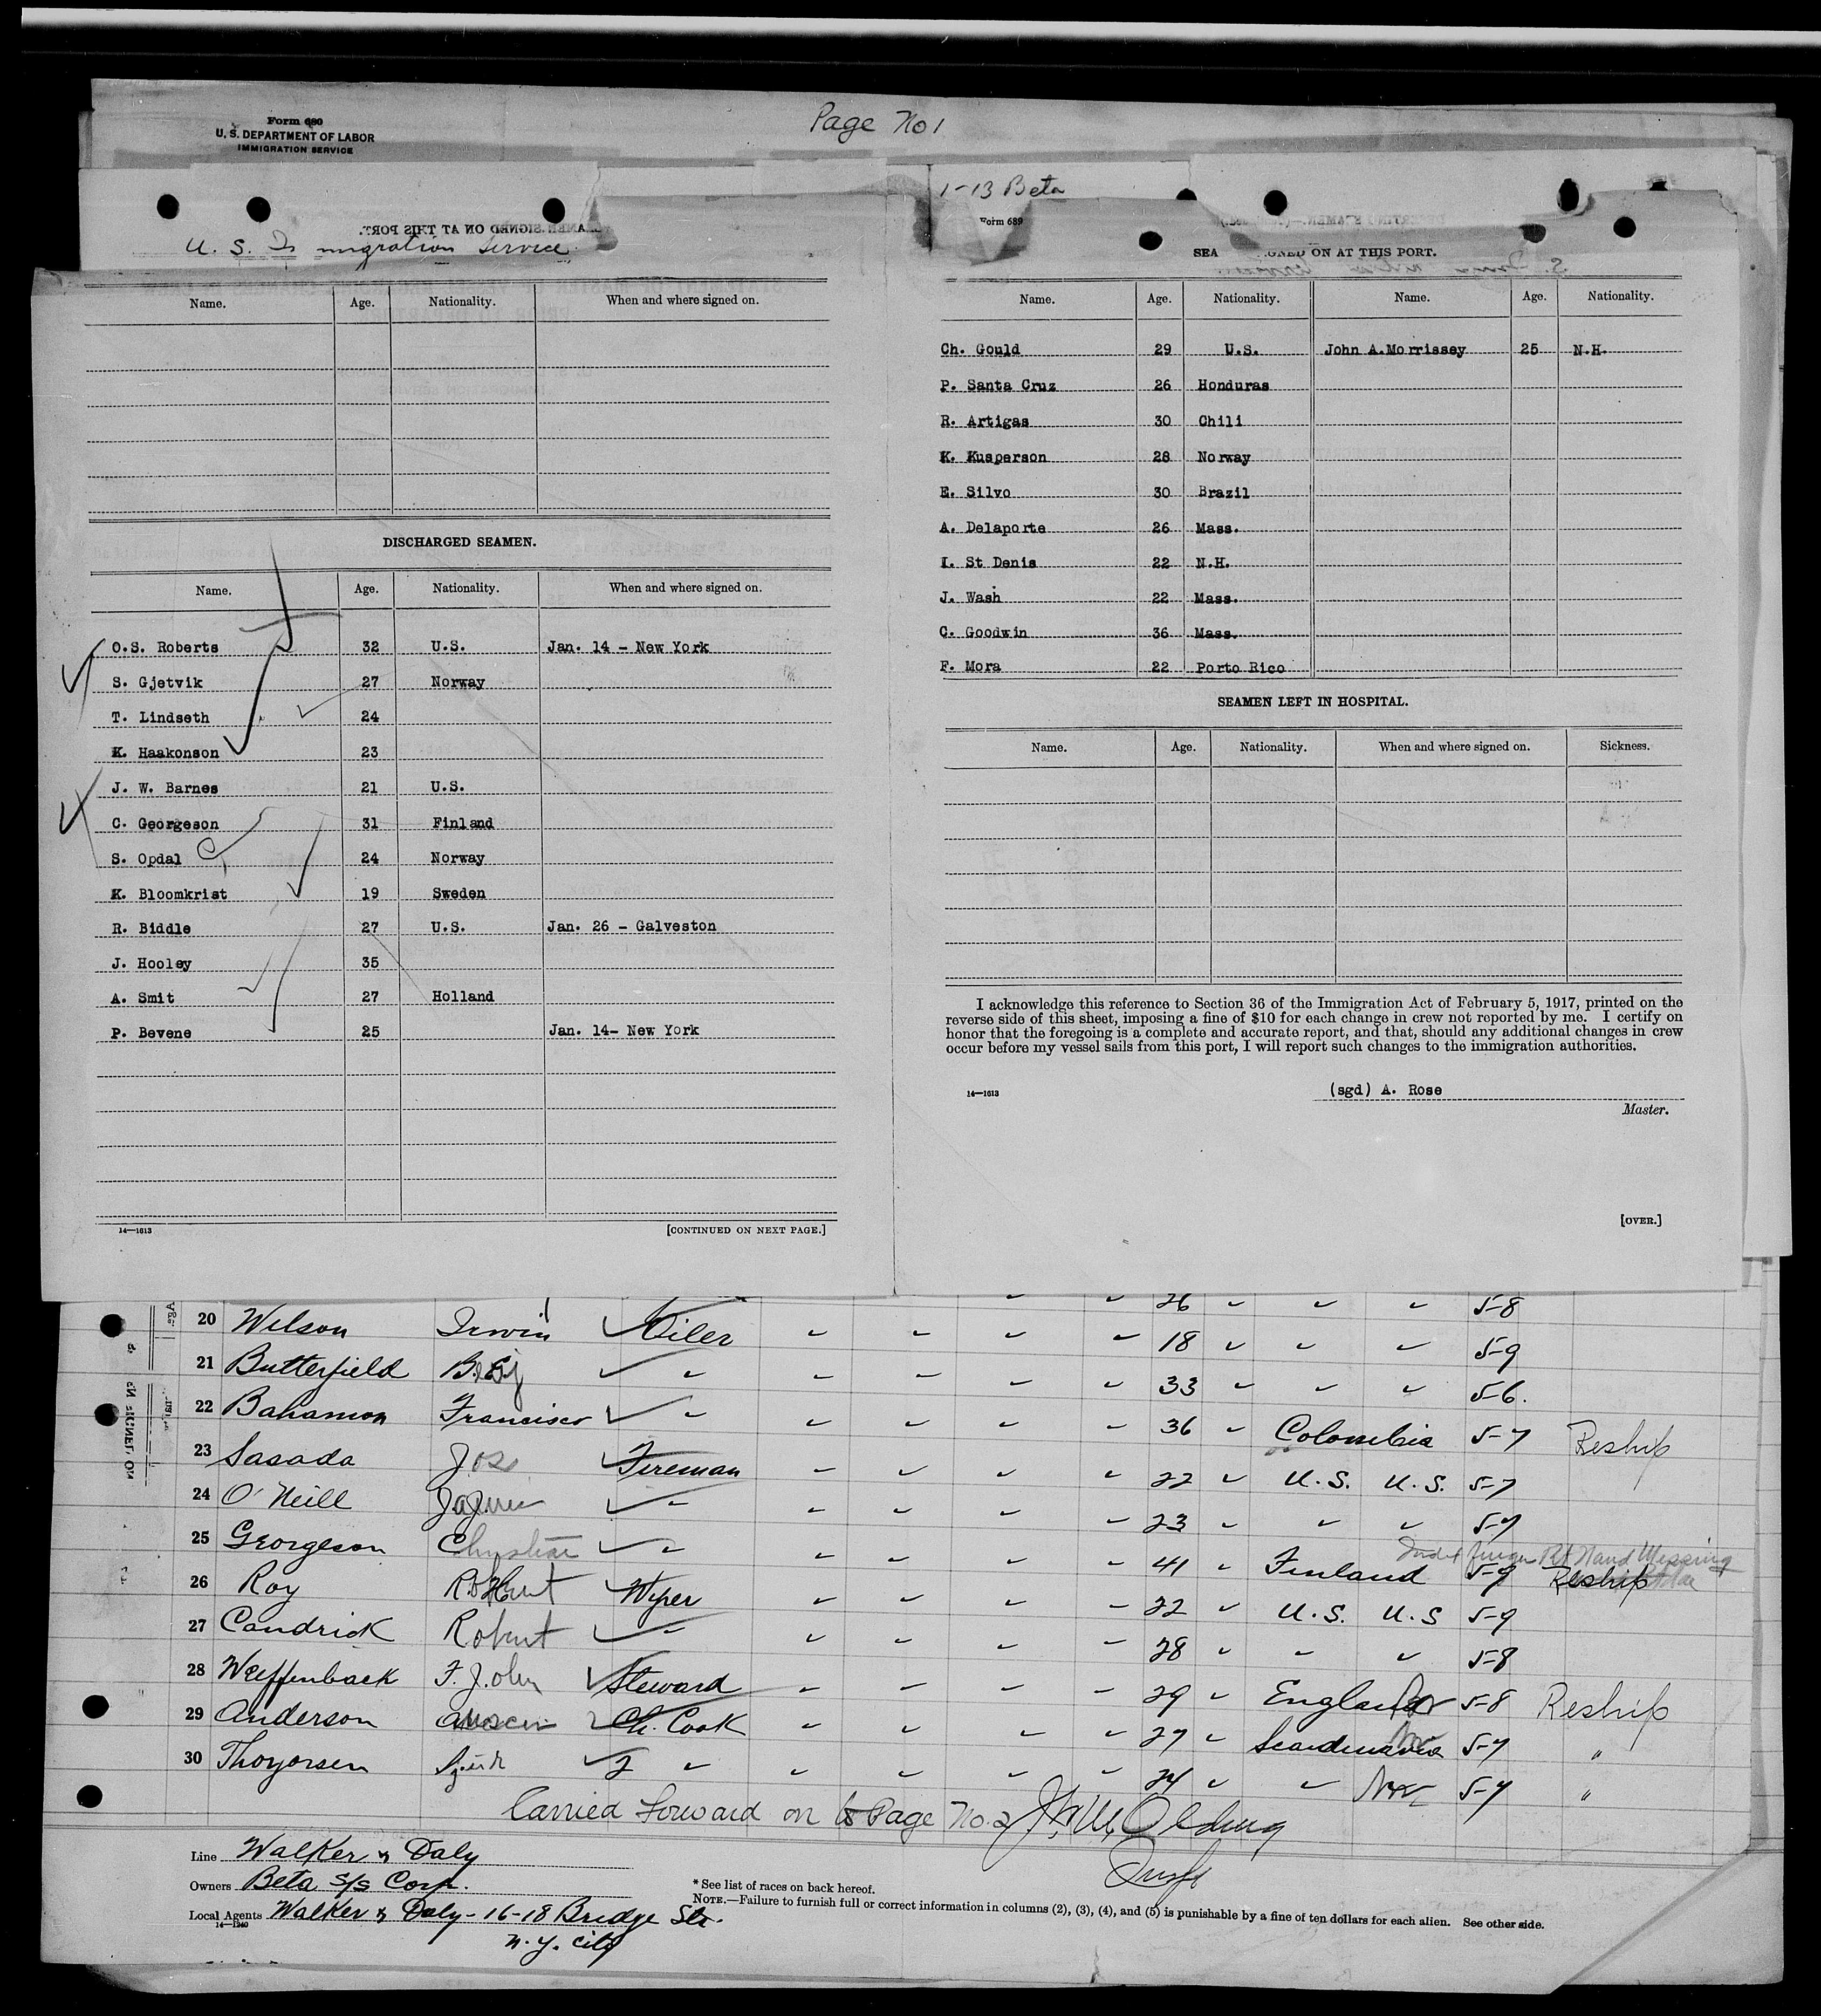 Form 680
U. S. DEPARTMENT OF LABOR
IMMIGRATION SERVICE
Page No 1
1-13 Beta
Form 689
U. S. Immigration Service
SEAMEN SIGNED ON AT THIS PORT.
Name. Age. Nationality. When and where signed on.
DISCHARGED SEAMEN.
Name. Age. Nationality. When and where signed on.
O.S. Roberts 32 U.S. Jan. 14 - New York
S. Gjetvik 27 Norway
T. Lindseth 24
K. Haakonson 23
J. W. Barnes 21 U.S.
C. Georgeson 31 Finland
S. Opdal 24 Norway
K. Bloomkrist 19 Sweden
R. Biddle 27 U.S. Jan. 26 - Galveston
J. Hooley 35
A. Smit 27 Holland
P. Bevene 25 Jan. 14- New York
14—1613 [CONTINUED ON NEXT PAGE.]
SEA GNED ON AT THIS PORT.
Name. Age. Nationality. Name. Age. Nationality.
Ch. Gould 29 U.S. John A.Morrissey 25 N.H.
P. Santa Cruz 26 Honduras
R. Artigas 30 Chili
K. Kusperson 28 Norway
E. Silvo 30 Brazil
A. Delaporte 26 Mass.
I. St Denis 22 N.H.
J. Wash 22 Mass.
C. Goodwin 36 Mass.
F. Mora 22 Porto Rico
SEAMEN LEFT IN HOSPITAL.
Name. Age. Nationality. When and where signed on. Sickness.
I acknowledge this reference to Section 36 of the Immigration Act of February 5, 1917, printed on the
reverse side of this sheet, imposing a fine of $10 for each change in crew not reported by me. I certify on
honor that the foregoing is a complete and accurate report, and that, should any additional changes in crew
occur before my vessel sails from this port, I will report such changes to the immigration authorities.
(sgd) A. Rose
14—1613
Master.
[OVER.]
26 5-8
20 Wilson Irwin Oiler 18 5-9
21 Butterfield 33 5-6.
22 Bahamon Francisco 36 Colombia 5-7 Reship
23 Sasada Jos Fireman 22 U.S. U.S. 5-7
24 O'Neill 23 5-7
Index finger Rt Hand Missing
25 Georgeson Christian 41 Finland 5-9 Reship
26 Roy Robert Wiper 22 U.S. U.S 5-9
27 Candrick Robert 28 5-8
28 Weiffenback F. John Steward 29 England 5-8 Reship
29 Anderson Ch. Cook 27 Scandinavia 5-7 "
30 Thoyorsen 2 24 Nor 5-7 "
Carried Forward on Page No. 2
Line Walker & Daly
Owners Beta S/S Corp.
Local Agents Walker & Daly - 16-18 Bridge Str.
14—1240
N.Y. City
* See list of races on back hereof.
NOTE.—Failure to furnish full or correct information in columns (2), (3), (4), and (5) is punishable by a fine of ten dollars for each alien. See other side.